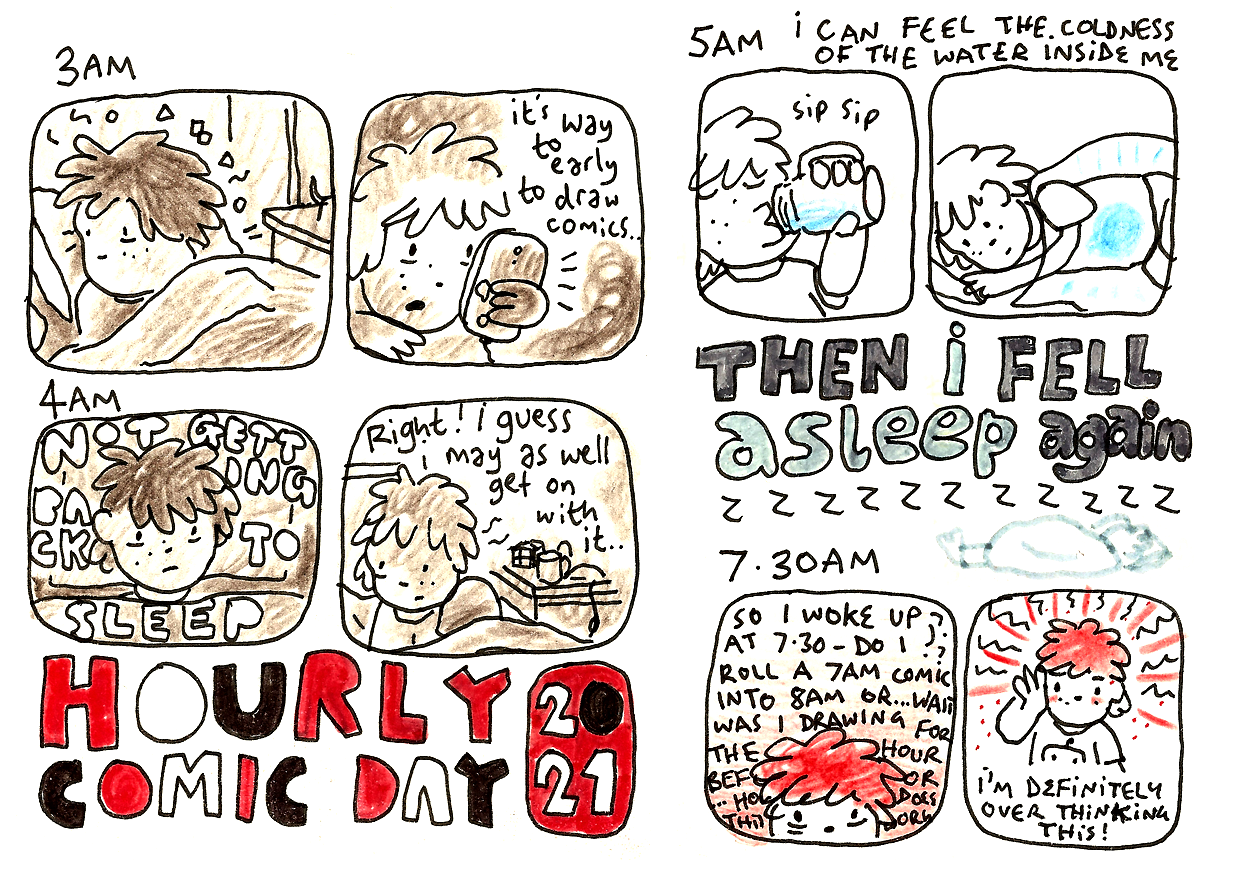 3AM
it's way
to early
to draw
comics..
4AM
NOT GETT
ING
BACK TO
SLEEP
Right! i guess
i may as well
get on
with
it..
HOURLY
COMIC DAY
20
21
5AM
i CAN FEEL THE COLDNESS
OF THE WATER INSIDE ME
sip sip
THEN i FELL
asleep again
z z z z z z z z z z z z
7.30AM
SO I WOKE UP
AT 7.30 - DO I ???
ROLL A 7AM COMIC
INTO 8AM OR...WAIT
WAS I DRAWING FOR
THE HOUR
BEF OR
... HOW DOES
THIS WORK
i'M DEFiNiTELY
OVER THiNKING
THiS!